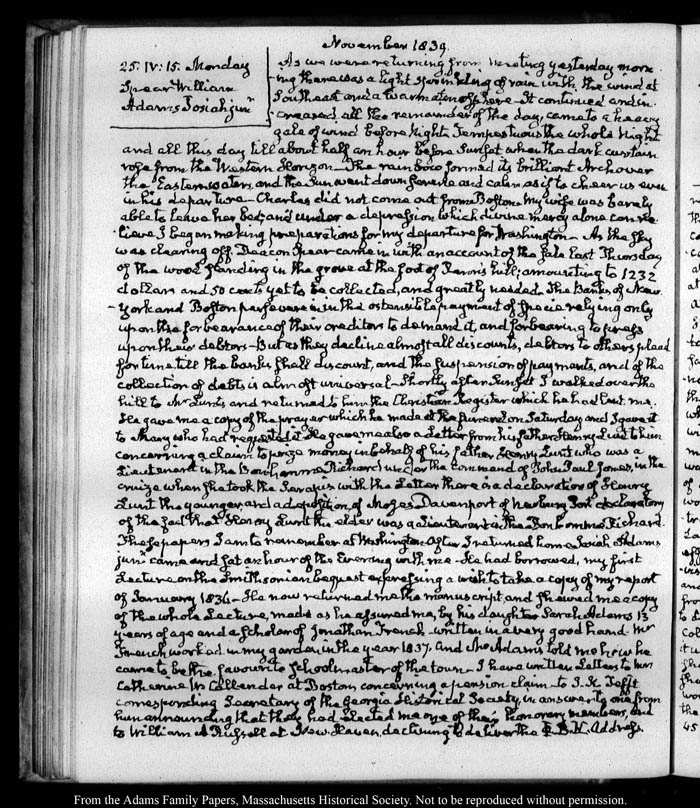 November 1839.
25. IV: 15. Monday
Spear William
Adams Josiah junr
As we were returning from Meeting yesterday morn-
-ing there was a light sprinkling of rain with the wind at
Southeast and a warm atmosphere. It continued and in-
creased all the remainder of the day, came to a heavy
gale of wind before Night. Tempestuous the whole Night
and all this day till about half an hour before Sunset when the dark curtain
rose from the Western Horizon— The rainbow formed its brilliant Arch over
the Eastern waters, and the Sun went down serene and calm as if to cheer us even
in his departure— Charles did not come out from Boston. My wife was barely
able to leave her bed, and under a depression which divine mercy alone can re-
-lieve I began making preparations for my departure for Washington— As the sky
was clearing off, Deacon Spear came in with an account of the sale last Thursday
of the wood standing in the grove at the foot of Penn's hill; amounting to 1232
dollars and 50 cents yet to be collected, and greatly needed. The Banks of New-
-York and Boston persevere in the ostensible payment of specie relying only
upon the forbearance of their creditors to demand it, and forbearing to press
upon their debtors— But as they decline almost all discounts, debtors to others plead
for time till the banks shall discount, and the suspension of payments, and of the
collection of debts is almost universal— Shortly after Sunset I walked over the
hill to Mr Lunt's and returned to him the Christian Register which he had lent me.
He gave me a copy of the prayer which he made at the funeral on Saturday and I gave it
to Mary who had requested it. He gave me also a Letter from his father Henry Lunt to him
concerning a claim to prize money in behalf of his father Henry Lunt who was a
Lieutenant in the Bonhomme Richard under the command of John Paul Jones, in the
cruize when she took the Serapis with the Letter there is a declaration of Henry
Lunt the younger, and a deposition of Moses Davenport of Newbury Port declaratory
of the fact that Henry Lunt the elder was a Lieutenant in the Bonhomme Richard.
These papers I am to remember at Washington. After I returned home Josiah Adams
junr came and sat an hour of the Evening with me— He had borrowed, my first
Lecture on the Smithsonian bequest expressing a wish to take a copy of my report
of January 1836— He now returned me the manuscript and shewed me a copy
of the whole Lecture, made as he assured me, by his daughter Sarah Adams 13
years of age and a scholar of Jonathan French— written in a very good hand. Mr
French work'd in my garden in the year 1837. and Mr Adams told me how he
came to be the favourite Schoolmaster of the town— I have written Letters to Mrs
Catherine W. Callender at Boston concerning a pension claim— to I. K. Tefft
corresponding Secretary of the Georgia Historical Society, in answer to one from
him announcing that they had elected me one of their honorary members, and
to William A Russell at New Haven, declining to deliver the Φ. B. K. Address.
From the Adams Family Papers, Massachusetts Historical Society. Not to be reproduced without permission.